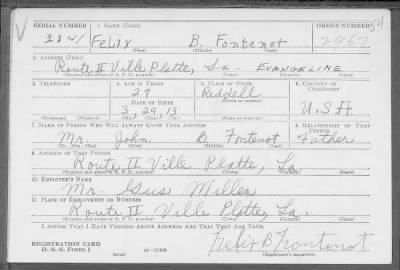 SERIAL NUMBER 1. NAME (Print) ORDER NUMBER
3341 Felix B. Fontenot 2967
(First) (Middle) (Last)
2. ADDRESS (Print)
Route II Ville Platte, La. EVANGELINE
(Number and street or R. F. D. number) (Town) (County) (State)
3. TELEPHONE 4. AGE IN YEARS 5. PLACE OF BIRTH 6. COUNTRY OF CITIZENSHIP
27 Reddell
(Town or county)
DATE OF BIRTH
3, 29, 13 U.S.A.
(Exchange) (Number) (Mo.) (Day) (Yr.) (State or country)
7. NAME OF PERSON WHO WILL ALWAYS KNOW YOUR ADDRESS 8. RELATIONSHIP OF THAT PERSON
Mr. John B Fontenot Father
(Mr., Mrs., Miss) (First) (Middle) (Last)
9. ADDRESS OF THAT PERSON
Route II Ville Platte, La
(Number and street or R. F. D. number) (Town) (County) (State)
10. EMPLOYER'S NAME
Mr. Gus Miller
11. PLACE OF EMPLOYMENT OR BUSINESS
Route II Ville Platte, La.
(Number and street or R. F. D. number) (Town) (County) (State)
I AFFIRM THAT I HAVE VERIFIED ABOVE ANSWERS AND THAT THEY ARE TRUE.
REGISTRATION CARD
D. S. S. Form 1 Felix B Fontenot
(over) (Signature)